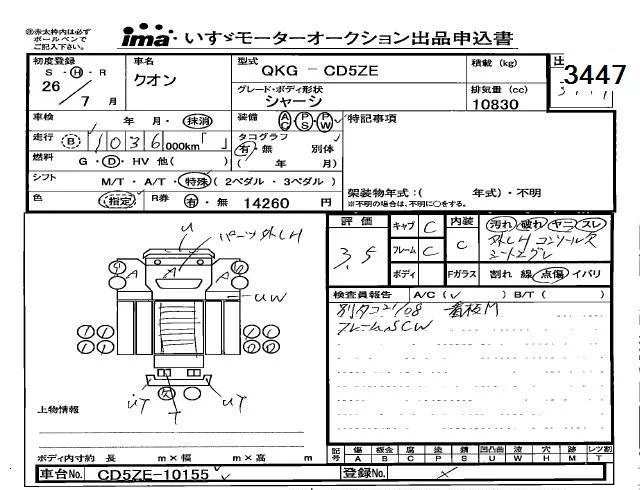 ㊟赤太枠内は必ず
ボールペンで
ご記入下さい。
ima・いすゞモーターオークション出品申込書
3447
初度登録
S・H・R
26/7月
車名
クオン
型式
QKG - CD5ZE
積載 (kg)
グレード・ボディ形状
シャーシ
排気量 (cc)
10830
車検 年 月・抹消
装備 AC PS PW
特記事項
走行 B 1036,000km「 」
タコグラフ
有・無 別体
( 年 月)
燃料 G・D・HV 他( )
シフト M/T・A/T・特殊(2ペダル・3ペダル)
架装物年式:( 年式)・不明
※不明の場合は、不明に○をする。
色 (指定) R券 有・無 14260 円
評価
3.5
キャブ C
フレーム C
ボディ
内装
C
汚れ 破れ ヤニ スレ
外しH コンソール欠
Fガラス 割れ 線 点傷 イバリ
U パーツ外しH
A A
UW
UT T UT
検査員報告 A/C(✓) B/T( )
別タコ21/08 看板M
フレームSCW
上物情報
ボディ内寸約 長 m×幅 m×高 m
記号 傷 板金 腐 塗 錆 凹凸曲 波 穴 跡 レンズ割
A B C P S U W H M T
車台No. CD5ZE-10155
登録No.